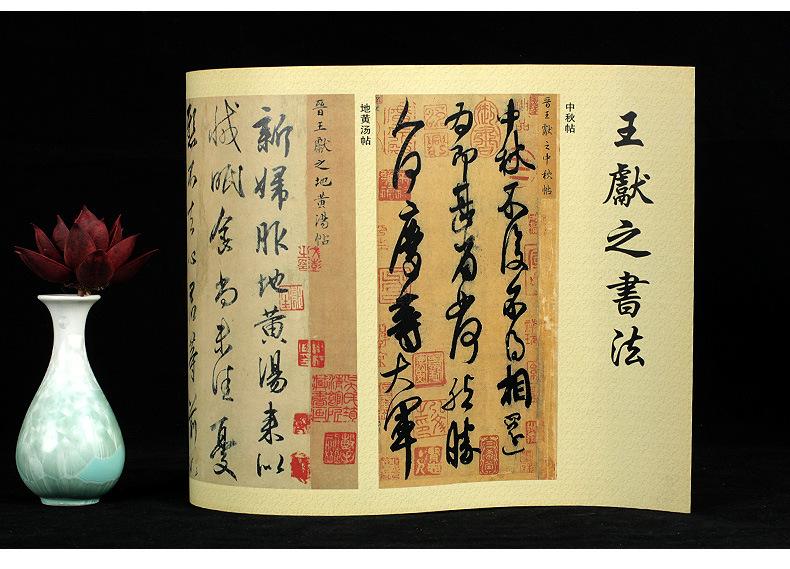 王獻之書法
中秋帖
晉王獻之中秋帖
中秋不復不得相還
為即甚省如何然勝
人何慶等大軍
地黄汤帖
晉王獻之地黃湯帖
新婦服地黃湯來似
減眠食尚未佳憂
懸不去心君等前所